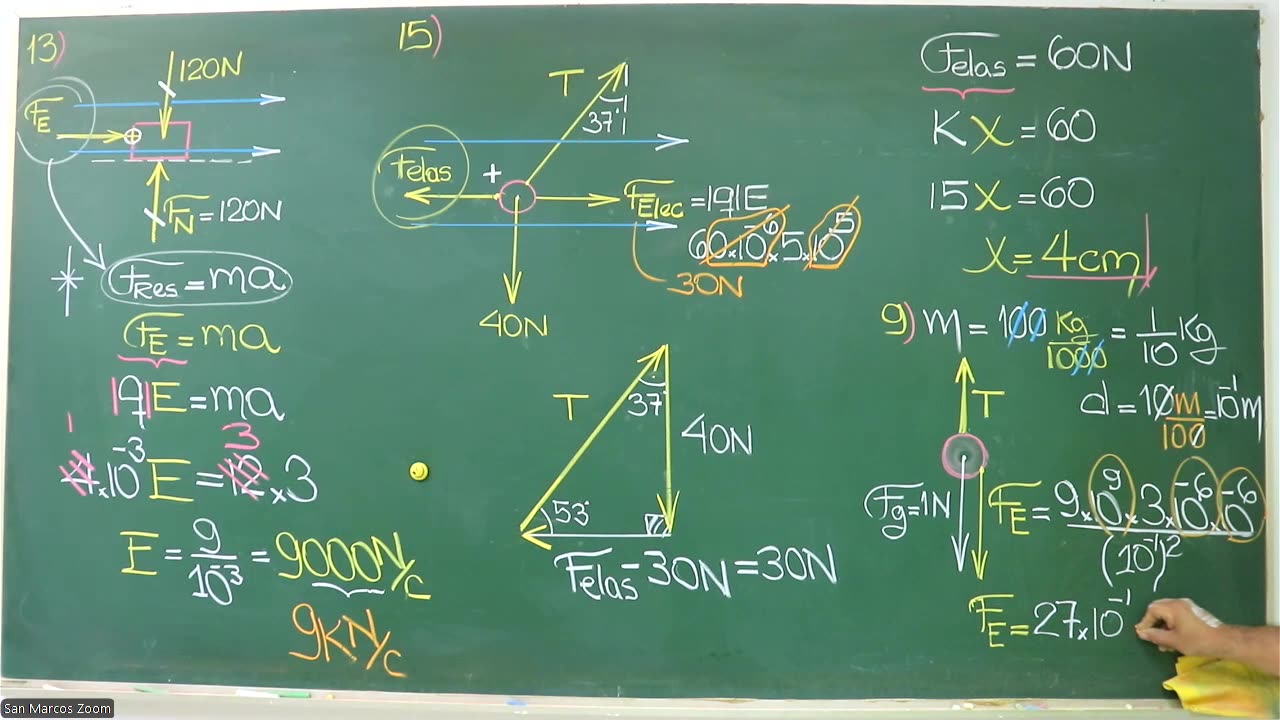 13)
120N
F_E
F_N = 120N
F_Res = ma
F_E = ma
|q|E = ma
1 3
4×10^-3 E = 12×3
E = 9/10^-3 = 9000 N/C
9KN/C
15)
T
37°
Felas
+
F_Elec = |q|E
60×10^-6×5×10^5
30N
40N
T
37°
40N
53°
Felas - 30N = 30N
Felas = 60N
K X = 60
15X = 60
X = 4cm
9) m = 100 Kg/1000 = 1/10 Kg
d = 10 m/100 = 10^-1 m
T
Fg = 1N
F_E = 9×10^9×3×10^-6×10^-6/(10^-1)^2
F_E = 27×10^-1
San Marcos Zoom